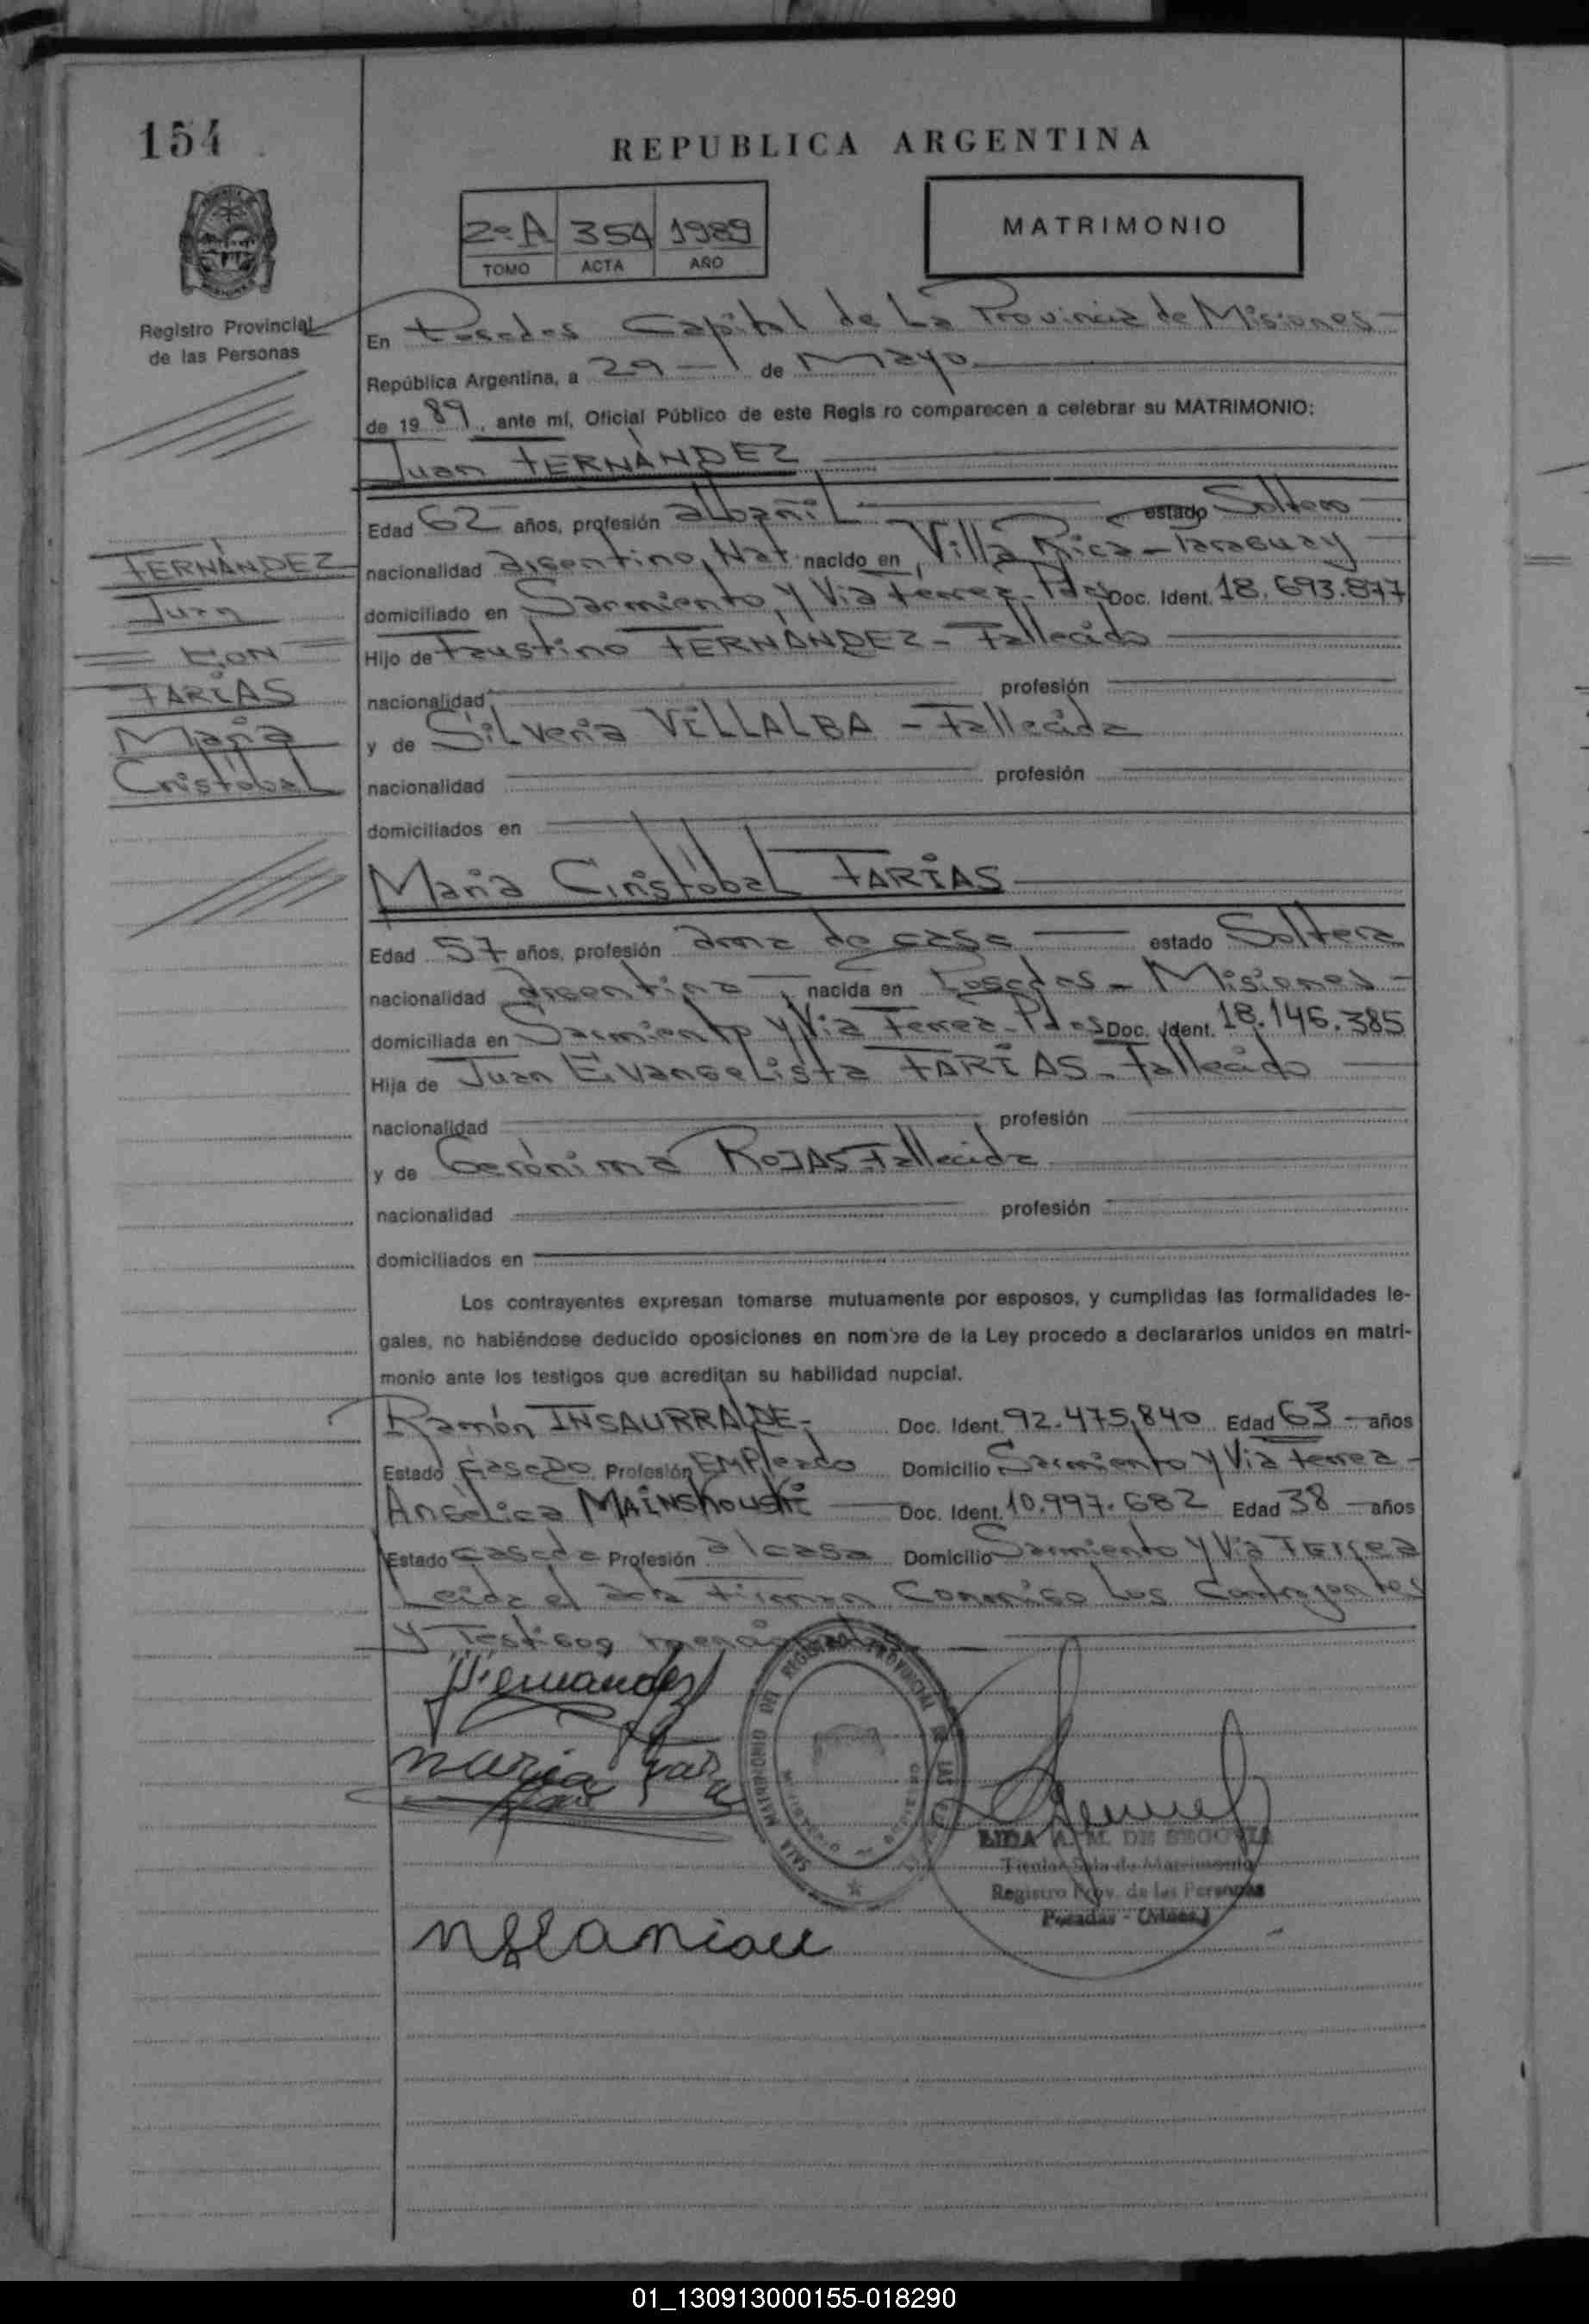 154
REPUBLICA ARGENTINA
2º A 354 1989
TOMO ACTA AÑO
MATRIMONIO
Registro Provincial
de las Personas
En Posadas Capital de La Provincia de Misiones
República Argentina, a 29 de Mayo
de 1989, ante mí, Oficial Público de este Regis ro comparecen a celebrar su MATRIMONIO:
Juan FERNÁNDEZ
Edad 62 años, profesión albañil estado Soltero
nacionalidad argentino, Nat. nacido en Villa Rica - Paraguay
domiciliado en Sarmiento y Vía ferrea - Pdas Doc. Ident. 18.693.877
Hijo de Faustino FERNÁNDEZ - Fallecido
nacionalidad profesión
y de Silveria VILLALBA - Fallecida
nacionalidad profesión
domiciliados en
FERNÁNDEZ
Juan
CON
FARIAS
María
Cristóbal
María Cristóbal FARIAS
Edad 57 años, profesión ama de casa estado Soltera
nacionalidad argentina, nacida en Posadas - Misiones
domiciliada en Sarmiento y Vía Ferrea - Pdas Doc. Ident. 18.146.385
Hija de Juan Evangelista FARIAS - Fallecido
nacionalidad profesión
y de Gerónima ROJAS - Fallecida
nacionalidad profesión
domiciliados en
Los contrayentes expresan tomarse mutuamente por esposos, y cumplidas las formalidades le-
gales, no habiéndose deducido oposiciones en nombre de la Ley procedo a declararlos unidos en matri-
monio ante los testigos que acreditan su habilidad nupcial.
Ramón INSAURRALDE - Doc. Ident. 92.475.840 Edad 63 años
Estado Casado Profesión Empleado Domicilio Sarmiento y Vía ferrea
Angélica MAINSKOUSKI Doc. Ident. 10.997.682 Edad 38 años
Estado casada Profesión a/casa Domicilio Sarmiento y Vía Ferrea
Leida el acta Firman Conmigo los Contrayentes
y Testigos mencionados
Fernández
SALA MATRIMONIO DEL REGISTRO PROVINCIAL DE LAS
maria
LIDA A. M. DE SEGOVIA
Titular Sala de Matrimonio
Registro Prov. de las Personas
Posadas - (Mnes.)
01_130913000155-018290